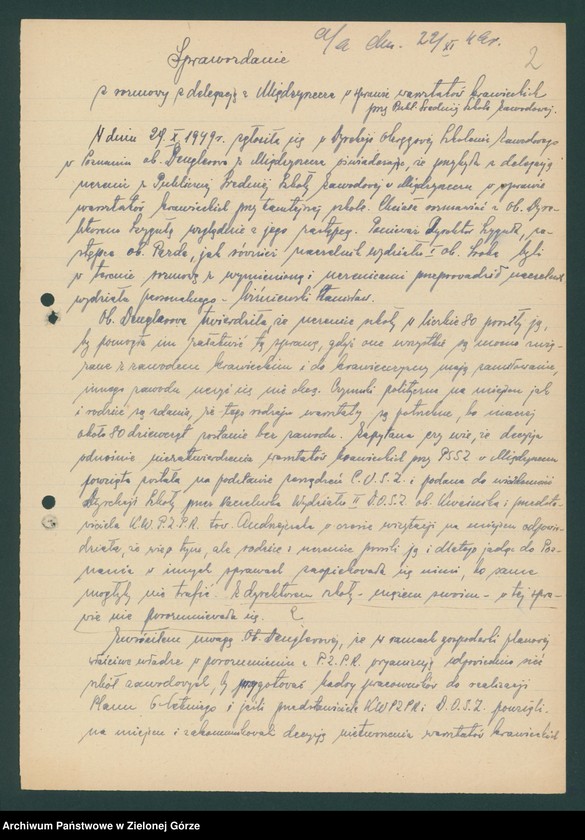 a/a dn. 22/XI 49r.
2
Sprawozdanie
z rozmowy z delegacją z Międzyrzecza w sprawie warsztatów krawieckich
przy Publ. Średniej Szkole Zawodowej.
W dniu X 1949r. zgłosiła się w Dyrekcji Okręgowej Szkolenia Zawodowego
w Poznaniu ob. Denglerowa z Międzyrzecza oświadczając, że przybyła z delegacją
uczennic z Publicznej Średniej Szkoły Zawodowej w Międzyrzeczu w sprawie
warsztatów krawieckich przy tamtejszej szkole. Chciała rozmawiać z ob. Dyre-
ktorem względnie z jego zastępcą. Ponieważ Dyrektor zaś za-
stępca ob. jak również naczelnik wydziału I ob. byli
w terenie rozmowę z wymienioną i uczennicami przeprowadził naczelnik
wydziału personalnego - Wiśniewski Stanisław.
Ob. Denglerowa twierdziła, że uczennice szkoły w liczbie 80 prosiły ją,
by pomogła im załatwić tę sprawę, gdyż one wszystkie są mocno zwią-
zane z zawodem krawieckim i do krawiecczyzny mają zamiłowanie,
innego zawodu uczyć się nie chcą. Czynniki polityczne na miejscu jak
i rodzice są zdania, że tego rodzaju warsztaty są potrzebne, bo inaczej
około 80 dziewcząt zostanie bez zawodu. Zapytana czy wie, że decyzja
odnośnie niezatwierdzenia warsztatów krawieckich przy PSSZ w Międzyrzeczu
powzięta została na podstawie zarządzeń C.U.S.Z. i podana do wiadomości
Dyrekcji Szkoły przez Naczelnika Wydziału II D.O.S.Z. ob. i przedsta-
wiciela K.W.P.Z.P.R. tow. w czasie wizytacji na miejscu odpowie-
działa, że wie o tym, ale rodzice i uczennice prosili ją i dlatego jadąc do Poz-
nania w innych sprawach zaopiekowała się nimi, bo same
mogłyby nie trafić. Z dyrektorem szkoły - mężem swoim - w tej spra-
wie nie porozumiewała się. ?
Zwróciłem uwagę Ob. Denglerowej, że w ramach gospodarki planowej
właściwe władze w porozumieniu z P.Z.P.R. organizują odpowiednią sieć
szkół zawodowych, by przygotować kadry pracowników do realizacji
Planu 6-letniego i jeśli przedstawiciele KWPZPR i D.O.S.Z. powzięli
na miejscu i zakomunikowali decyzję nietworzenia warsztatów krawieckich
Archiwum Państwowe w Zielonej Górze